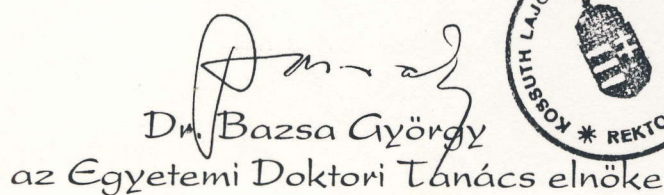 Dr. Bazsa György
az Egyetemi Doktori Tanács elnöke
KOSSUTH LAJO
* REKTO